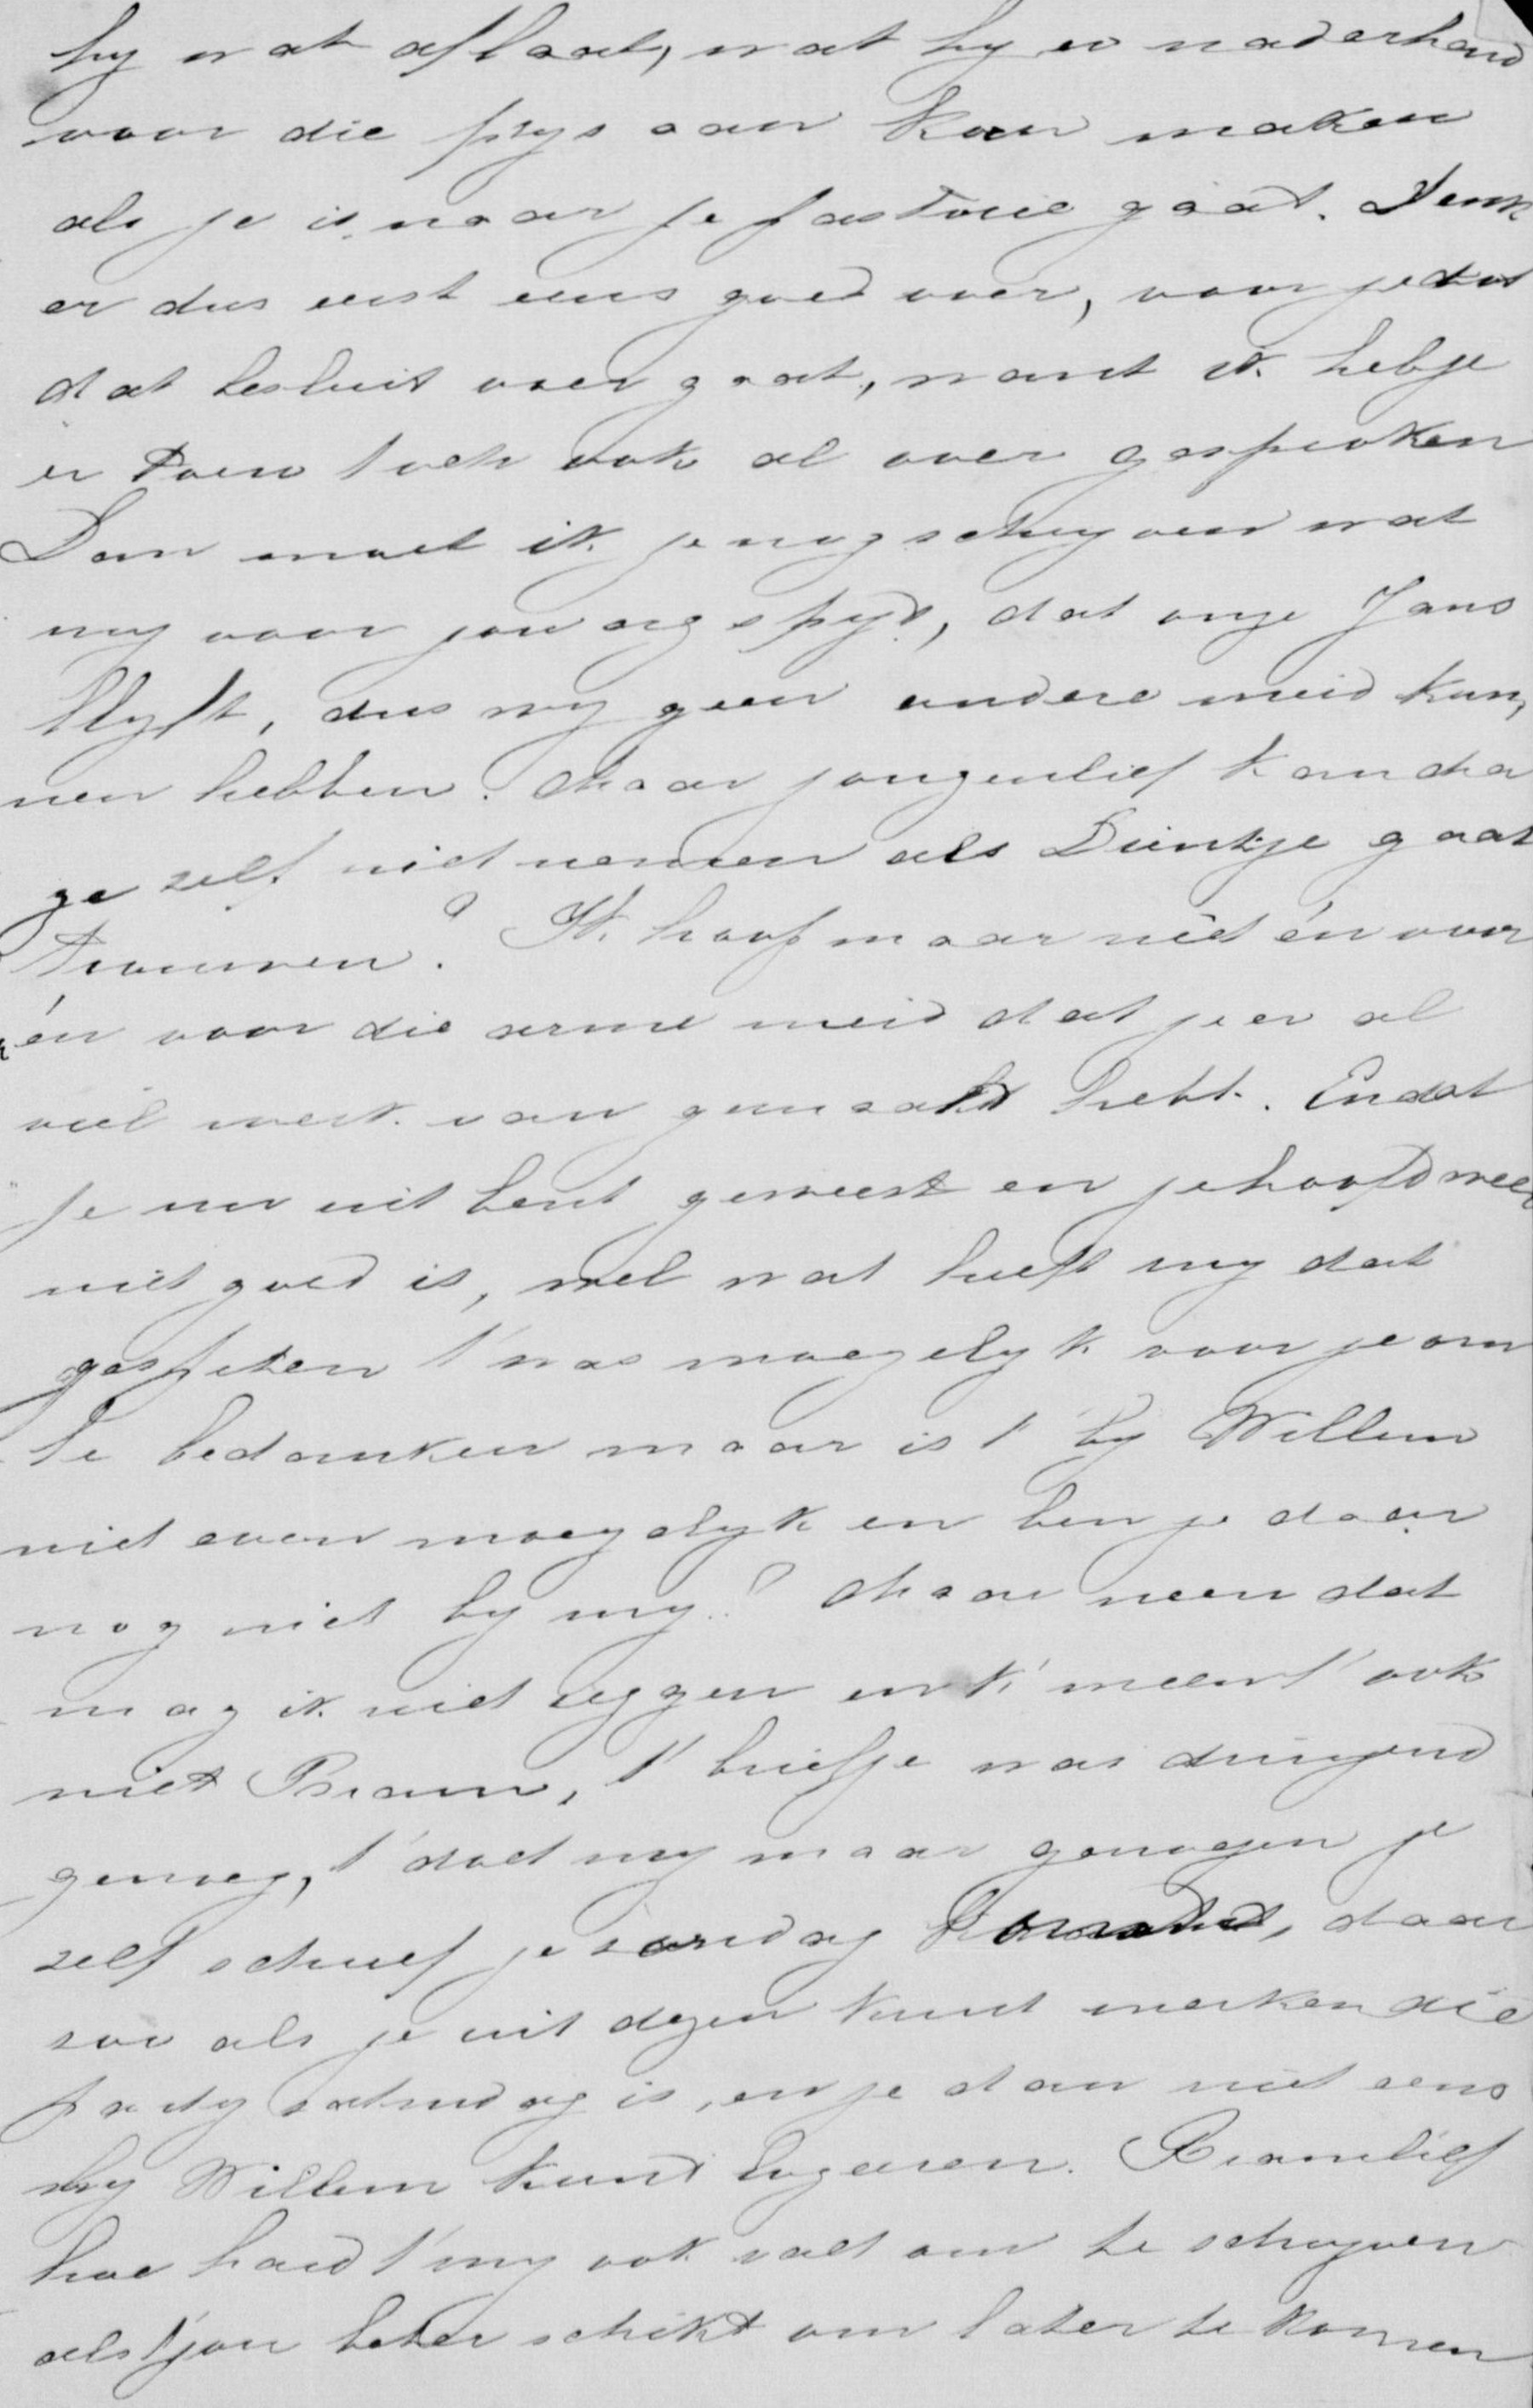 hy wat aflaat, wat hy er naderhand
voor die prys aan kan maken
als je is naar je pastorie gaat. Denk
er dus eerst eens goed over, voor je tot
dat besluit over gaat, want ik heb je
er toen toch ook al over gesproken
Dan moet ik je nog schryven wat
my voor jou erg spyt, dat onze Jans
blyft, dus wy geen andere meid kun,
nen hebben. Maar jongenlief kan da
ze zelf niet nemen als Dientje gaat
trouwen? Ik hoop maar niet én voor
én voor die arme meid dat je er al
veel werk van gemaakt hebt. En dat
je nu uit bent geweest en je hoofd weer
niet goed is, wel wat heeft my dat
gespeten t' was moegelyk voor je om
te bedanken maar is t' by Willem
niet even moegelyk en ben je daar
nog niet by my? Maar neen dat
mag ik niet zeggen en k' meen t' ook
niet Bram, t' briefje was dringend
genoeg, t' doet my maar genoegen je
zelf schreef je zondag daar
zoo als je uit dezen kunt merken die
party zaterdag is, en je dan niet eens
by Willem kunt logeeren. Bramlief
hoe hard t' my ook valt om te schryven
als t' jou beter schikt om later te komen